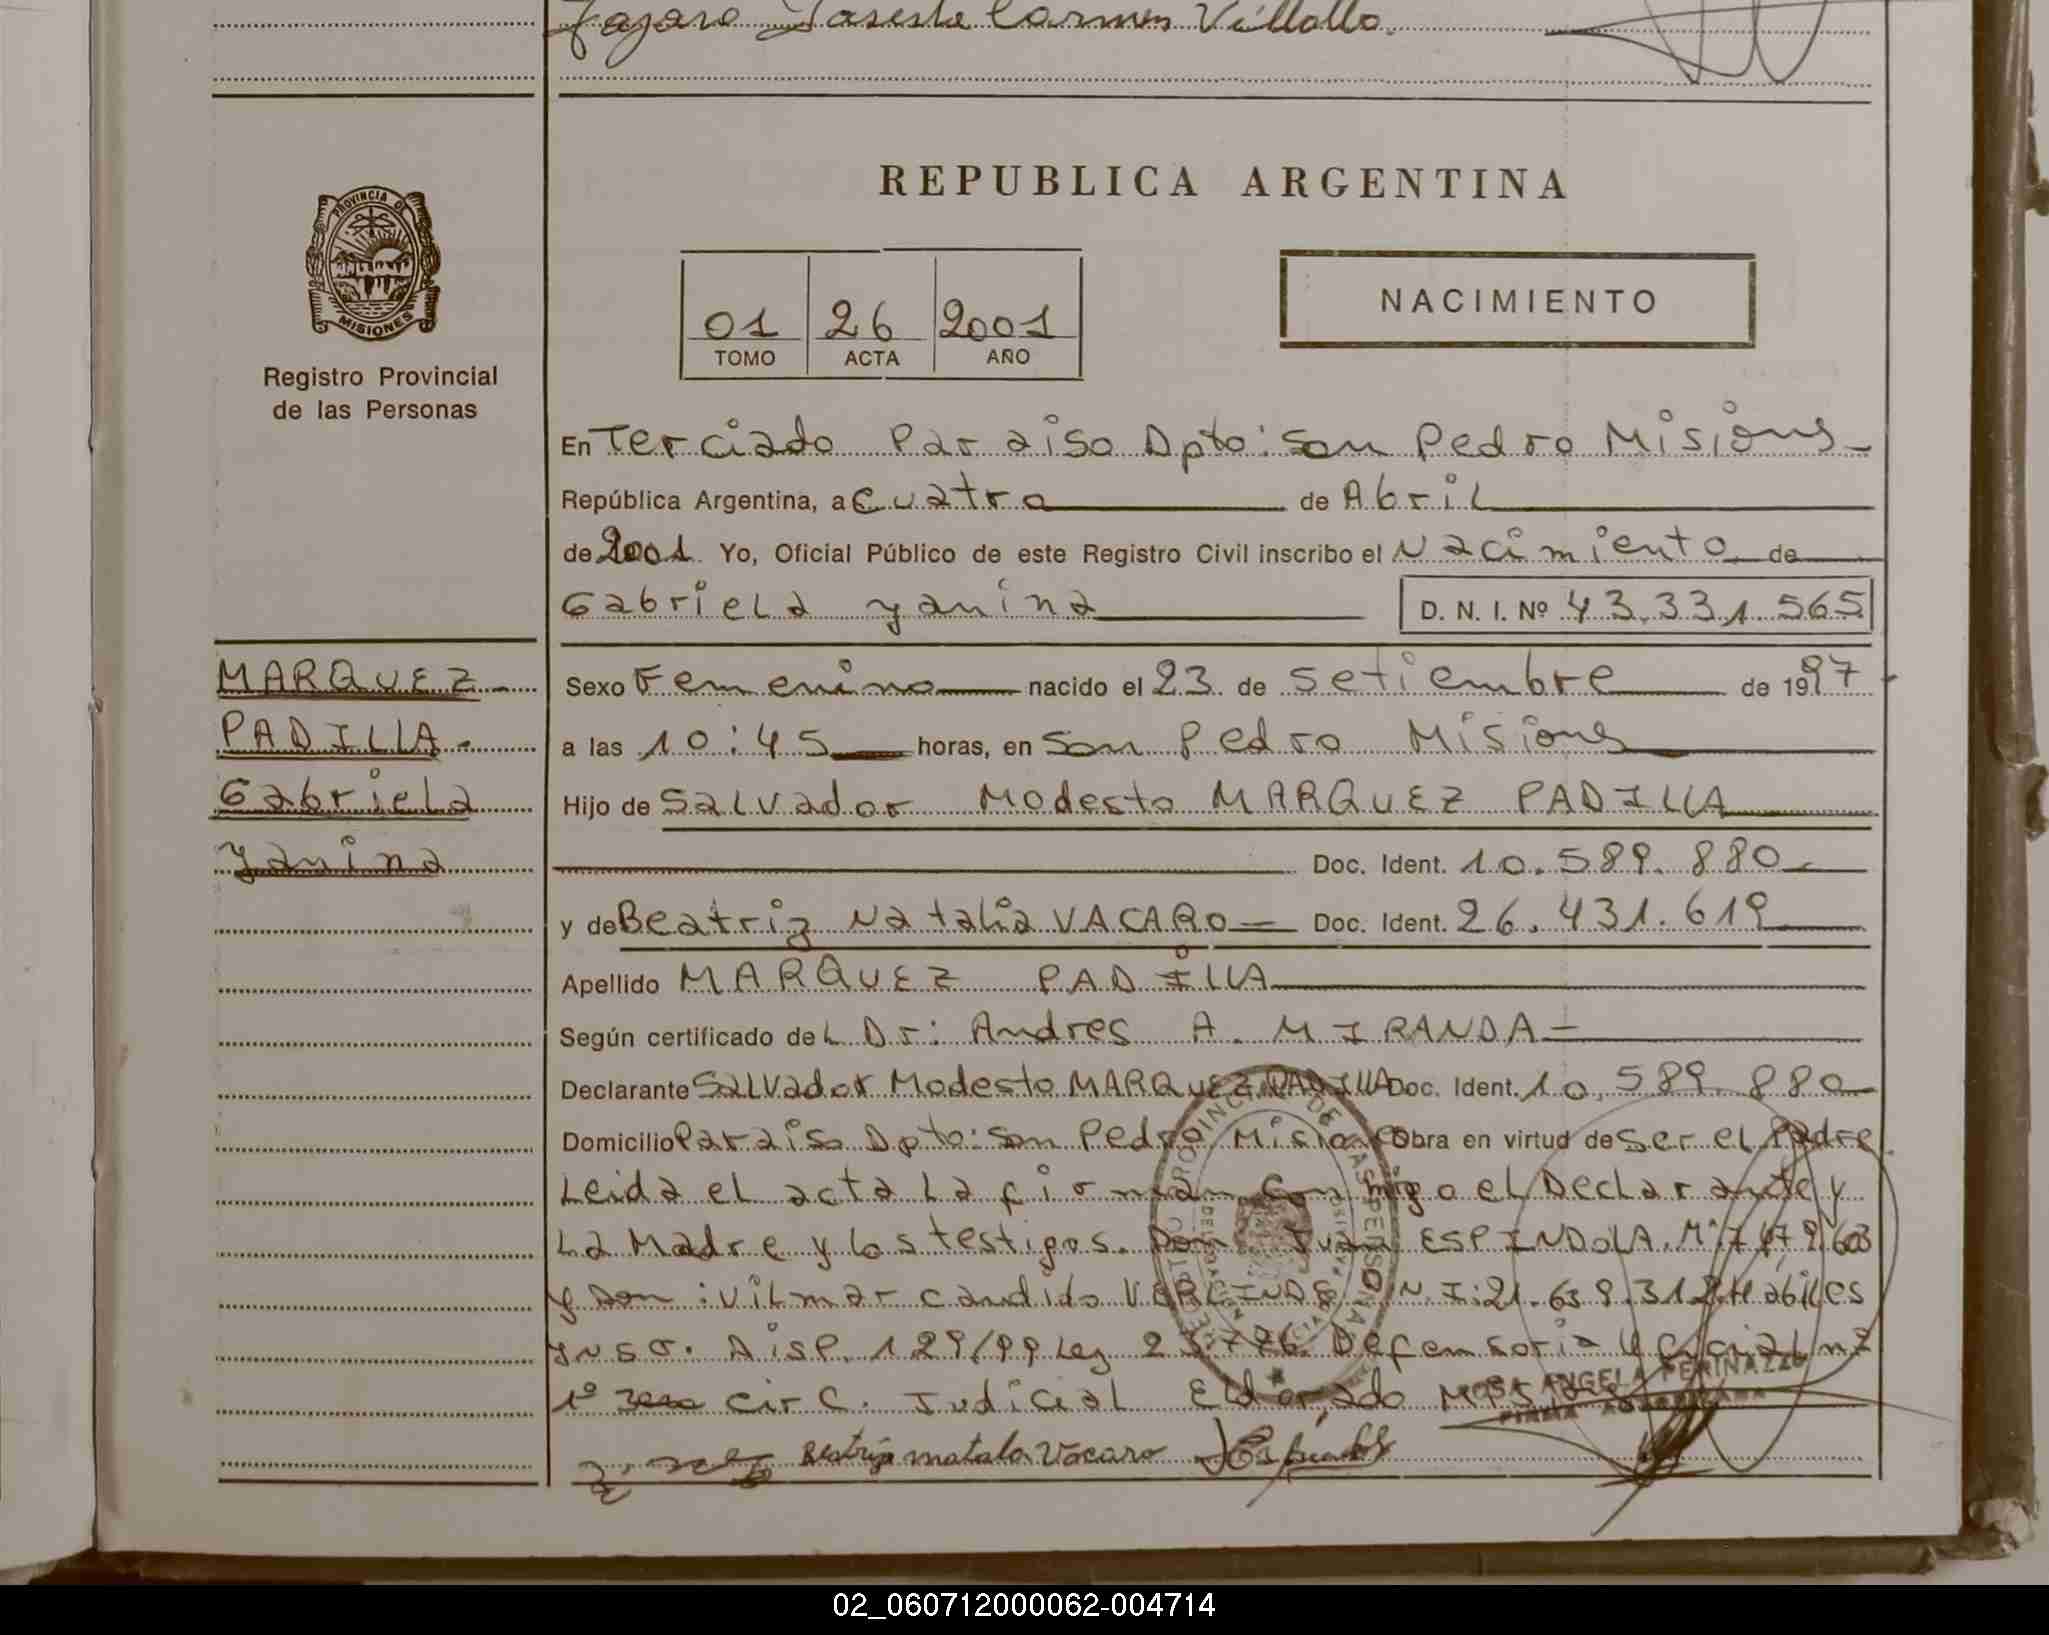 Carmen Villalba.
REPUBLICA ARGENTINA
PROVINCIA DE
MISIONES
Registro Provincial
de las Personas
01 26 2001
TOMO ACTA AÑO
NACIMIENTO
En Terciado Paraiso Dpto: San Pedro Misiones
República Argentina, a cuatro de Abril
de 2001. Yo, Oficial Público de este Registro Civil inscribo el Nacimiento de
Gabriela Yanina D. N. I. Nº 43.331.565
MARQUEZ
PADILLA.
Gabriela
Yanina
Sexo Femenino nacido el 23 de Setiembre de 1997
a las 10:45 horas, en San Pedro Misiones
Hijo de Salvador Modesto MARQUEZ PADILLA
Doc. Ident. 10.589.880
y de Beatriz Natalia VACARO Doc. Ident. 26.431.619
Apellido MARQUEZ PADILLA
Según certificado del Dr: Andres A. MIRANDA
Declarante Salvador Modesto MARQUEZ PADILLA Doc. Ident. 10.589.880
Domicilio Paraiso Dpto: San Pedro Misiones Obra en virtud de ser el Padre
Leida el acta La firman conmigo el Declarante y
La Madre y los testigos. Don Juan ESPINDOLA. M:
y Don: Vilmar candido N.I: 21.639.312 Habiles
Disp. 129/99 Ley Defensoria
1º circ. Judicial Eldorado Misiones
ROSA ANGELA
Beatriz natalia Vacaro
02_060712000062-004714